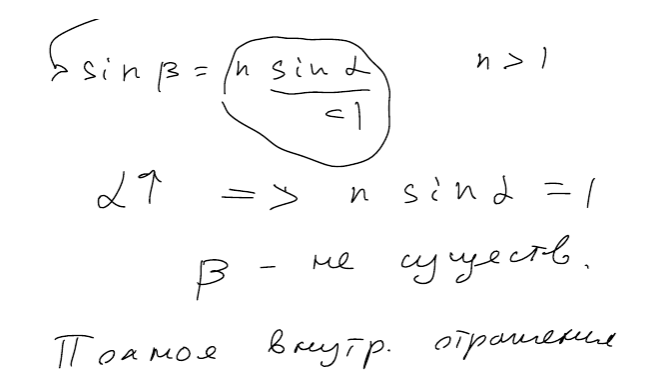 sin β = n sin α n > 1
< 1
α↑ => n sin α = 1
β - не существ.
внутр. отражения